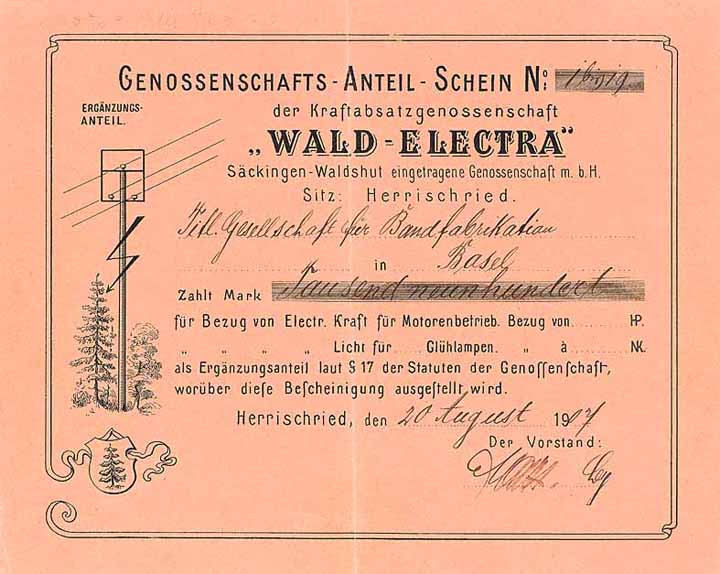 GENOSSENSCHAFTS-ANTEIL-SCHEIN No: 1 bis 19.
ERGÄNZUNGS-
ANTEIL.
der Kraftabsatzgenossenschaft
„WALD-ELECTRA“
Säckingen-Waldshut eingetragene Genossenschaft m. b. H.
Sitz: Herrischried.
Titl. Gesellschaft für Bandfabrikation
in Basel
Zahlt Mark Tausend neunhundert
für Bezug von Electr. Kraft für Motorenbetrieb. Bezug von HP.
„ „ „ „ Licht für Glühlampen. „ à NK.
als Ergänzungsanteil laut § 17 der Statuten der Genoſſenſchaft,
worüber dieſe Beſcheinigung ausgeſtellt wird.
Herrischried, den 20 August 1907
Der Vorstand: